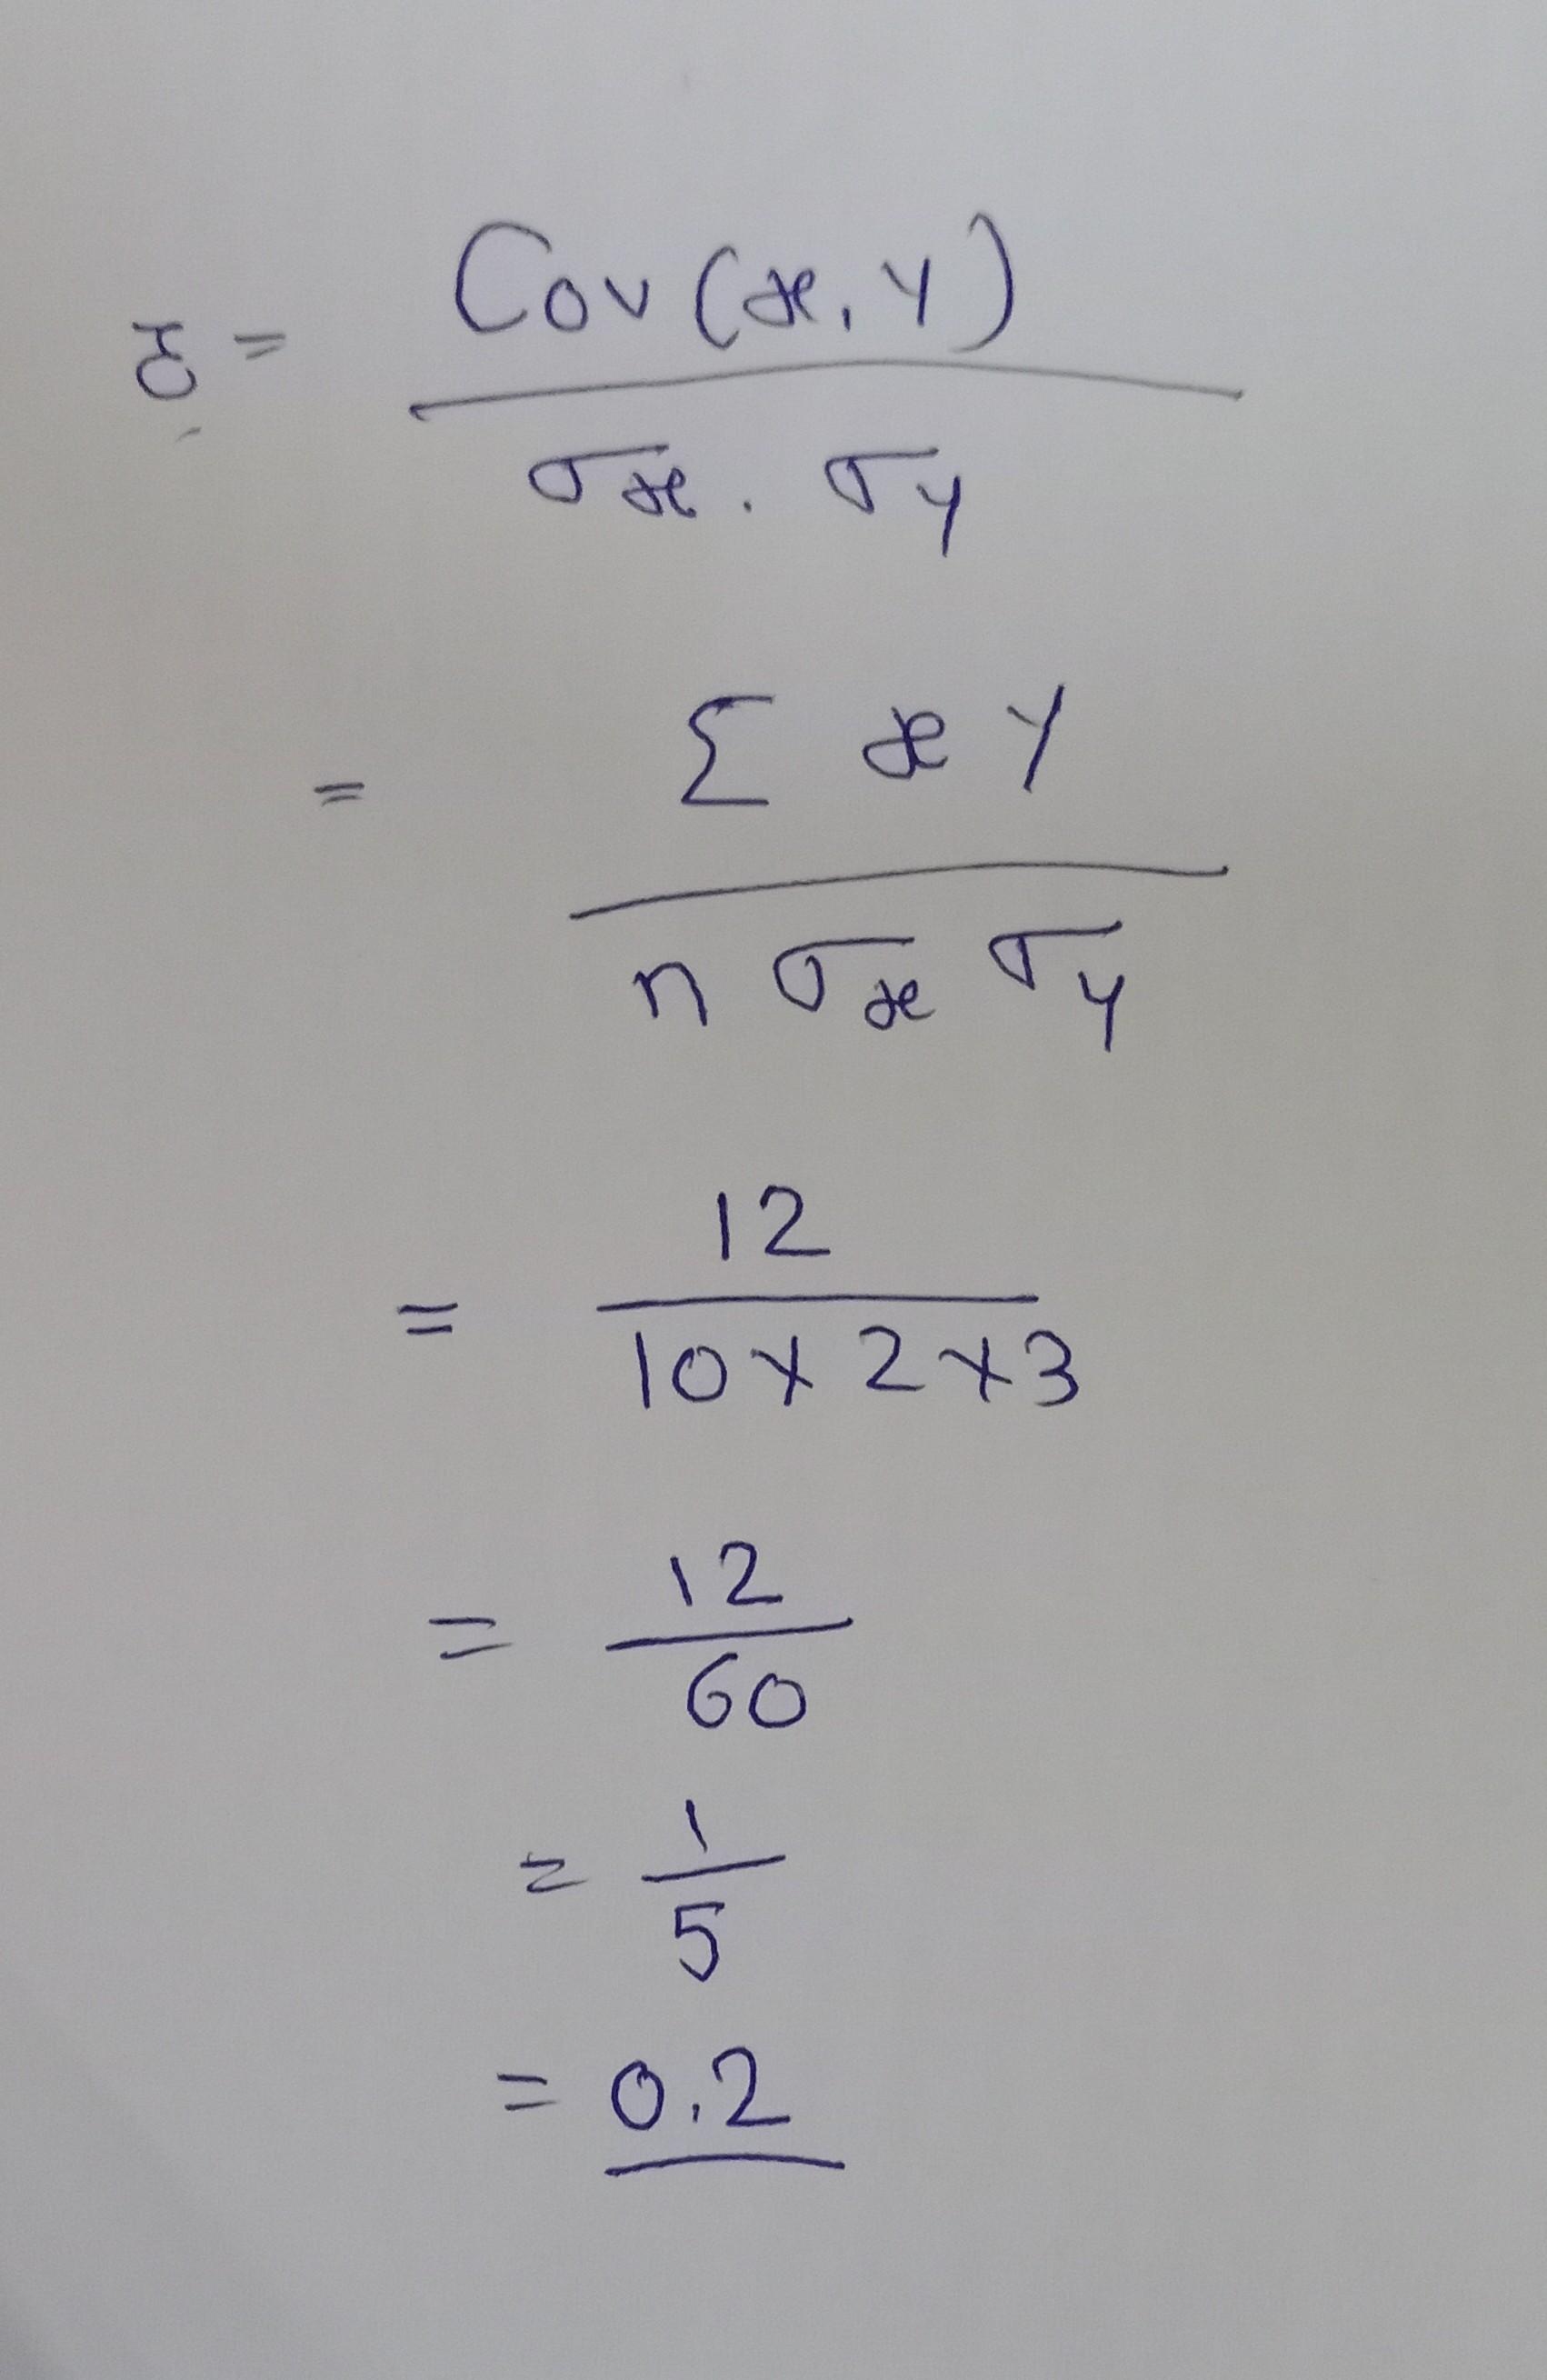 r = Cov(x, y) / σx . σy
= Σ x y / n σx σy
= 12 / 10 × 2 × 3
= 12 / 60
= 1 / 5
= 0.2